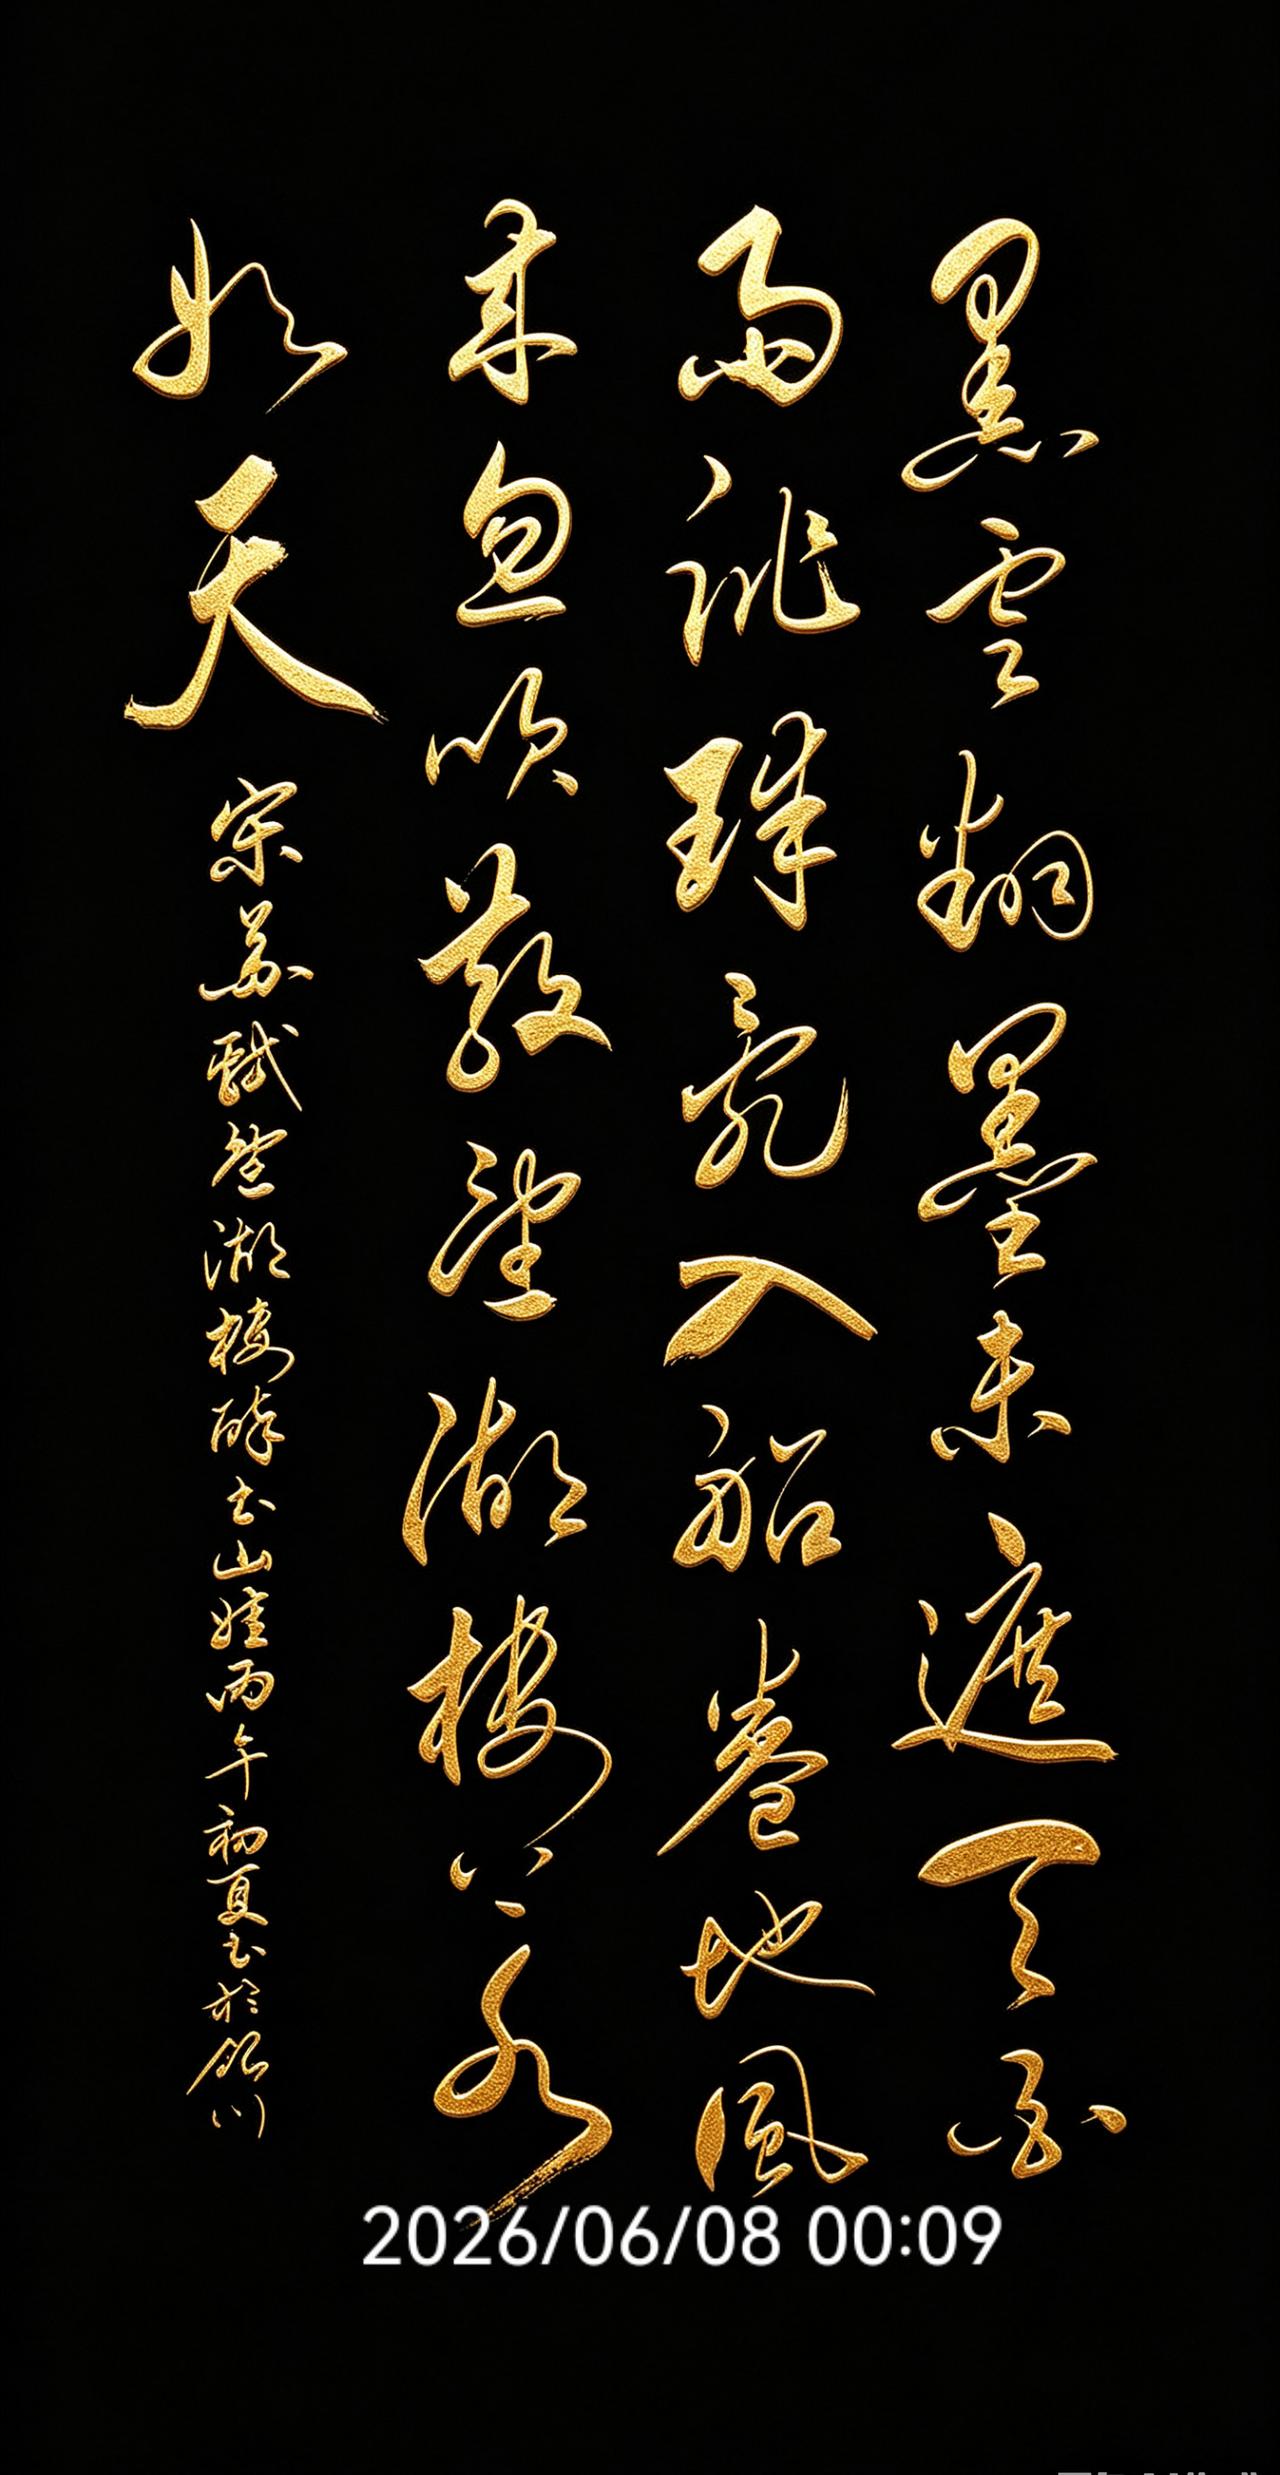 黑雲翻墨未遮天白
雨跳珠亂入船卷地風
来忽吹散望湖樓下水
如天
宋苏軾望湖樓醉书山娃丙午初夏书於銀川
2026/06/08 00:09